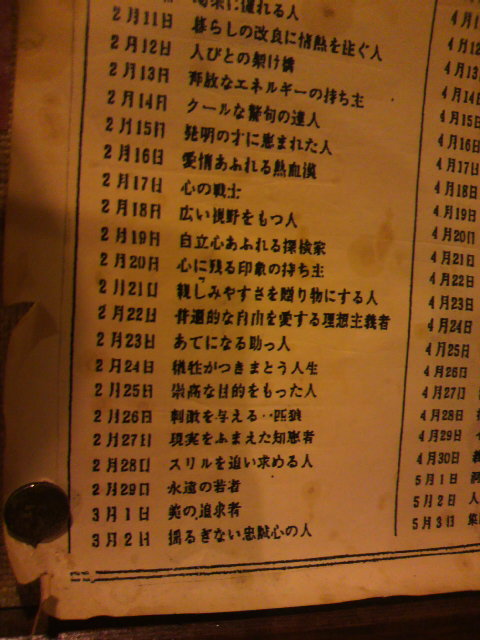 に優れる人
2月11日 暮らしの改良に情熱を注ぐ人
2月12日 人びとの架け橋
2月13日 奔放なエネルギーの持ち主
2月14日 クールな警句の達人
2月15日 発明の才に恵まれた人
2月16日 愛情あふれる熱血漢
2月17日 心の戦士
2月18日 広い視野をもつ人
2月19日 自立心あふれる探検家
2月20日 心に残る印象の持ち主
2月21日 親しみやすさを贈り物にする人
2月22日 普遍的な自由を愛する理想主義者
2月23日 あてになる助っ人
2月24日 犠牲がつきまとう人生
2月25日 崇高な目的をもった人
2月26日 刺激を与える一匹狼
2月27日 現実をふまえた知恵者
2月28日 スリルを追い求める人
2月29日 永遠の若者
3月1日 美の追求者
3月2日 揺るぎない忠誠心の人
4月11
4月12
4月13
4月14
4月15日
4月16日
4月17日
4月18日
4月19日
4月20日
4月21日
4月22日
4月23日
4月24日
4月25日
4月26日
4月27日
4月28日
4月29日
4月30日
5月1日
5月2日 人
5月3日